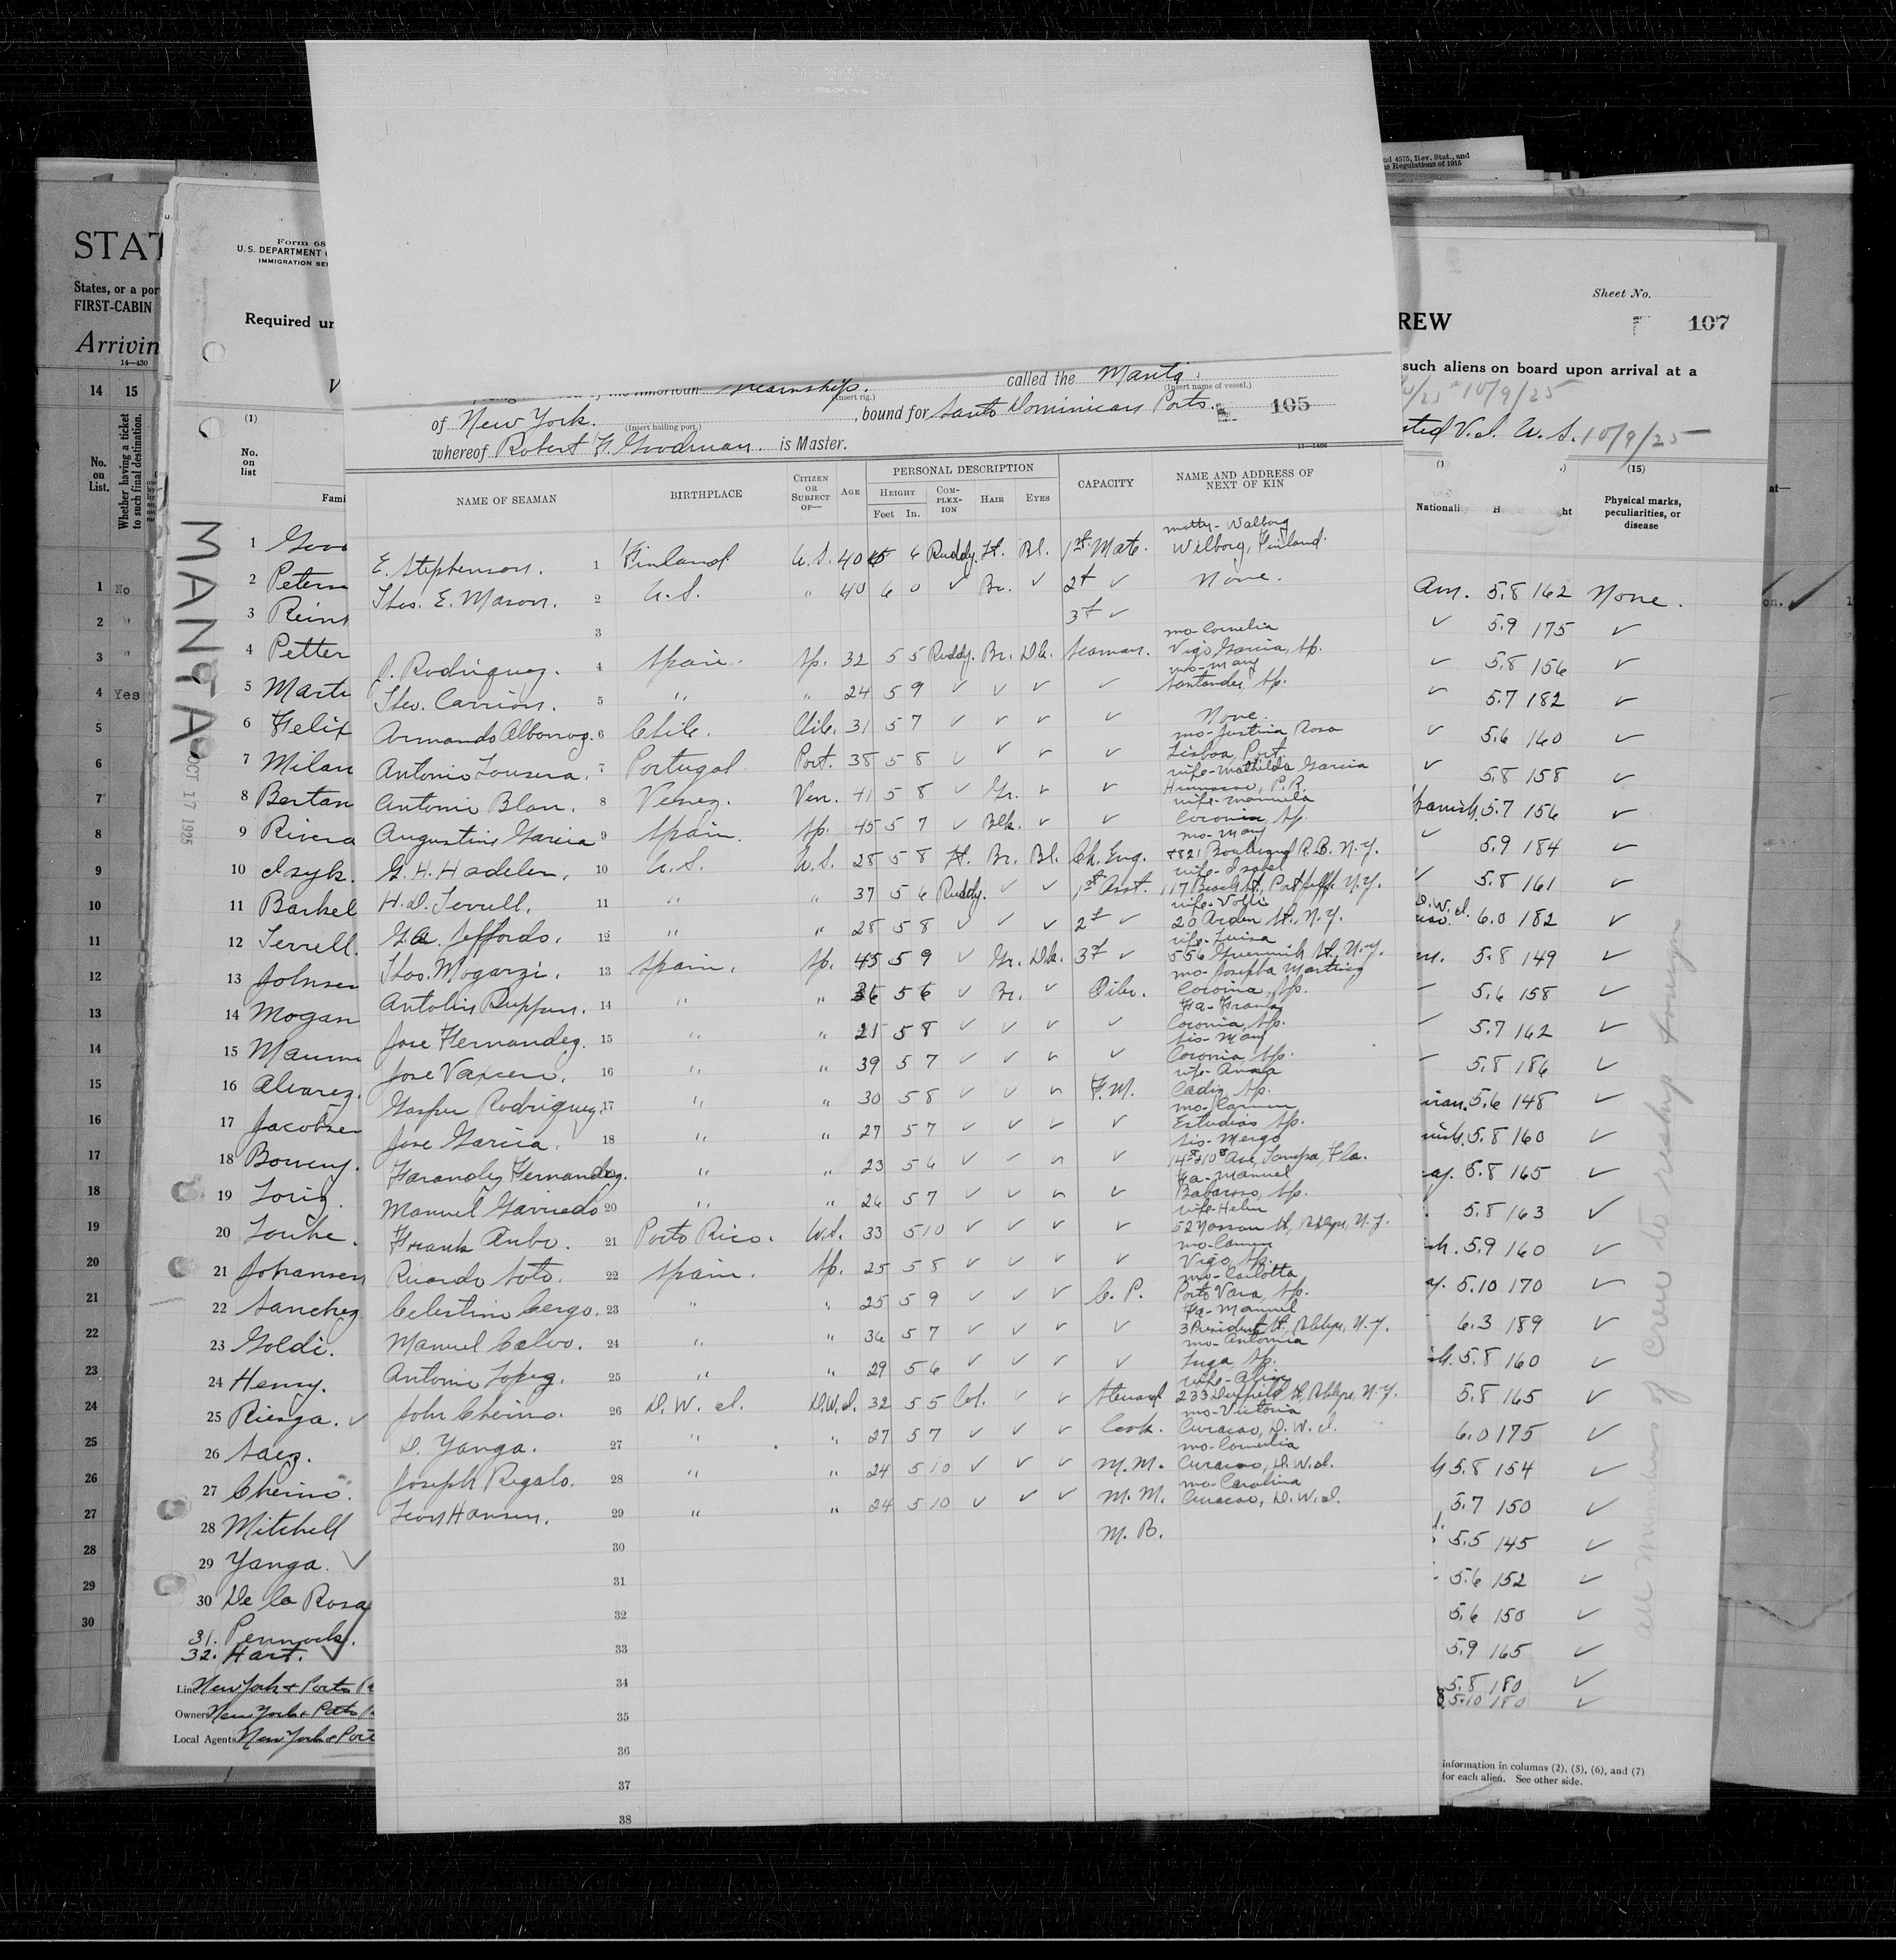 STAT
States, or a por
FIRST-CABIN
Arrivin
14—430
14 15
No. on List.
Whether having a ticket to such final destination.
1 No
2 "
3 "
4 Yes
5
6
7
8
9
10
11
12
13
14
15
16
17
18
19
20
21
22
23
24
25
26
27
28
29
30
Form 68
U.S. DEPARTMENT
IMMIGRATION SE
Required un
V
(1)
No. on list
Fami
MANTA
OCT 17 1925
1 Goo
2 Peters
3 Rein
4 Petter
5 Marti
6 Felix
7 Milan
8 Bertan
9 Rivera
10 Isyk.
11 Barkel
12 Terrell.
13 Johnsen
14 Mogan
15 Maum
16 Alvarez.
17 Jacobsen
18 Boweny.
19
20
21 Johansen
22 Sanchez
23 Goldi.
24 Henry.
25 Rienza. ✓
26 Saez.
27 Cherino.
28 Mitchell
29 Yanga. ✓
30 De la Rosa
31. Pennock.
32. Hart. ✓
Line New York & Porto
Owners New York & Porto
Local Agents New York & Port
Steamship. called the Manta
(Insert rig.) (Insert name of vessel.)
of New York. , bound for Santo Dominican Ports. 105
(Insert hailing port.)
whereof Robert F. Goodman. is Master.
11—1408
NAME OF SEAMAN BIRTHPLACE CITIZEN OR SUBJECT OF— AGE PERSONAL DESCRIPTION CAPACITY NAME AND ADDRESS OF NEXT OF KIN
HEIGHT COM-PLEX-ION HAIR EYES
Feet In.
E. Stephenson. 1 Finland U.S. 40 5 6 Ruddy. Lt. Bl. 1st Mate. Walborg Wilborg, Finland.
Thos. E. Mason. 2 U.S. " 40 6 0 ✓ Br. ✓ 2d ✓ None.
3 3d ✓
P. Rodriguez. 4 Spain. Sp. 32 5 5 Ruddy. Br. Dk. Seaman. mo-Cornelia Vigo Garcia, Sp.
Theo. Carrion. 5 " " 24 5 9 ✓ ✓ ✓ ✓ mo-Mary Santander, Sp.
Armando Albornoz. 6 Chile. Chile. 31 5 7 ✓ ✓ ✓ ✓ None.
Antonio 7 Portugal Port. 38 5 8 ✓ ✓ ✓ ✓ mo-Justina Rosa Lisboa, Port.
Antonio Blan. 8 Venez. Ven. 41 5 8 ✓ Gr. ✓ ✓ wife-Mathilda Garcia P.R.
Augustine Garcia 9 Spain. Sp. 45 5 7 ✓ Blk. ✓ ✓ wife-Manuela Coronia, Sp.
G. H. Hadelen. 10 U.S. U.S. 28 5 8 Lt. Br. Bl. Ch. Eng. mo-Mary 8821 Boulevard R.B. N.Y.
H. D. Terrell. 11 " " 37 5 6 Ruddy. ✓ ✓ 1st Asst. wife-Isabel 117 N.Y.
G. A. Jeffords. 12 " " 28 5 8 ✓ ✓ ✓ 2d ✓ 20 Arden St., N.Y.
Thos. Mogarzi. 13 Spain. Sp. 45 5 9 ✓ Gr. Dk. 3d ✓ wife-Luisa 556 Greenwich St, N.Y.
Antolin 14 " " 36 5 6 ✓ Br. ✓ Oiler. mo-Josepha Martinez Coronia, Sp.
Jose Fernandez. 15 " " 21 5 8 ✓ ✓ ✓ ✓ Fa-Frank Coronia, Sp.
Jose 16 " " 39 5 7 ✓ ✓ ✓ ✓ sis-Mary Coronia, Sp.
Gasper Rodriguez. 17 " " 30 5 8 ✓ ✓ ✓ F.M. Cadiz Sp.
Jose Garcia. 18 " " 27 5 7 ✓ ✓ ✓ ✓ mo-Carmen Estudias Sp.
Fernandez. " " 23 5 6 ✓ ✓ ✓ ✓ 10th Ave, Tampa, Fla.
Manuel Garriedo 20 " " 26 5 7 ✓ ✓ ✓ ✓ Fa-Manuel Sp.
Frank Aubo. 21 Porto Rico. U.S. 33 5 10 ✓ ✓ ✓ ✓ wife-Helen 52 Nassau St, Bklyn, N.Y.
Ricardo Soto. 22 Spain. Sp. 25 5 8 ✓ ✓ ✓ ✓ mo-Carmen Vigo, Sp.
Celestino Cergo. 23 " " 25 5 9 ✓ ✓ ✓ C. P. mo-Carlotta Porto Vara, Sp.
Manuel Calvo. 24 " " 36 5 7 ✓ ✓ ✓ ✓ Fa-Manuel 3 President St, Bklyn, N.Y.
Antonio Lopez. 25 " " 29 5 6 ✓ ✓ ✓ ✓ mo-Antonia Luga, Sp.
John Cherino. 26 D. W. I. D.W.I. 32 5 5 Col. ✓ ✓ Steward 233 Duffield St, Bklyn, N.Y.
D. Yanga. 27 " " 27 5 7 ✓ ✓ ✓ Cook. mo-Victoria Curacao, D.W.I.
Joseph Regalo. 28 " " 24 5 10 ✓ ✓ ✓ M.M. mo-Cornelia Curacao, D.W.I.
Leon Hansen. 29 " " 24 5 10 ✓ ✓ ✓ M.M. mo-Carolina Curacao, D.W.I.
30 M.B.
31
32
33
34
35
36
37
38
nd 4575, Rev. Stat., and
Regulations of 1915
Sheet No.
REW 107
such aliens on board upon arrival at a
10/9/25
sted V.I. U.S. 10/9/25
(15)
Nationali Physical marks, peculiarities, or disease
Am. 5.8 162 None.
✓ 5.9 175 ✓
✓ 5.8 156 ✓
✓ 5.7 182 ✓
✓ 5.6 160 ✓
✓ 5.8 158 ✓
Spanish. 5.7 156 ✓
✓ 5.9 184 ✓
✓ 5.8 161 ✓
D.W.I. 6.0 182 ✓
m. 5.8 149 ✓
✓ 5.6 158 ✓
5.7 162 ✓
5.8 186 ✓
5.6 148 ✓
5.8 160 ✓
5.8 165 ✓
5.8 163 ✓
5.9 160 ✓
5.10 170 ✓
6.3 189 ✓
5.8 160 ✓
5.8 165 ✓
6.0 175 ✓
5.8 154 ✓
5.7 150 ✓
5.5 145 ✓
5.6 152 ✓
5.6 150 ✓
5.9 165 ✓
5.8 180 ✓
5.10 180 ✓
information in columns (2), (5), (6), and (7)
for each alien. See other side.
all members of Crew to reship foreign